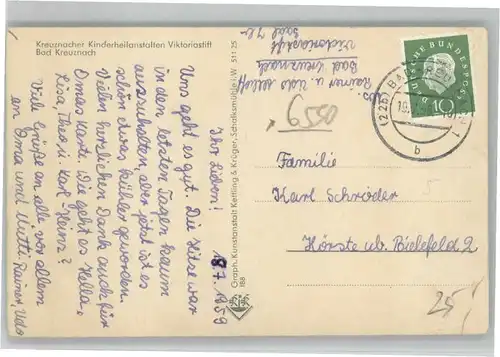 Kreuznacher Kinderheilanstalten Viktoriastift
Bad Kreuznach
18.7.1959
Ihr Lieben!
Uns geht es gut. Die Hitze war
in den letzten Tagen kaum
auszuhalten, aber jetzt ist es
schon etwas kühler geworden.
Vielen herzlichen Dank auch für
Omas Karte. Wie geht es Hella,
Lisa, Theo, u. Karl-Heinz?
Viele Grüße an alle, vor allem
an Oma und Mutti. Rainer, Udo
Graph. Kunstanstalt Kettling & Krüger, Schalksmühle i. W. 511 25
188
Rainer u. Udo
Bad Kreuznach
Viktoriastift
Saal
6550
DEUTSCHE BUNDESPOST
10
(22b) BAD
b
Familie
Karl Schröder
Hörste üb. Bielefeld 2
25